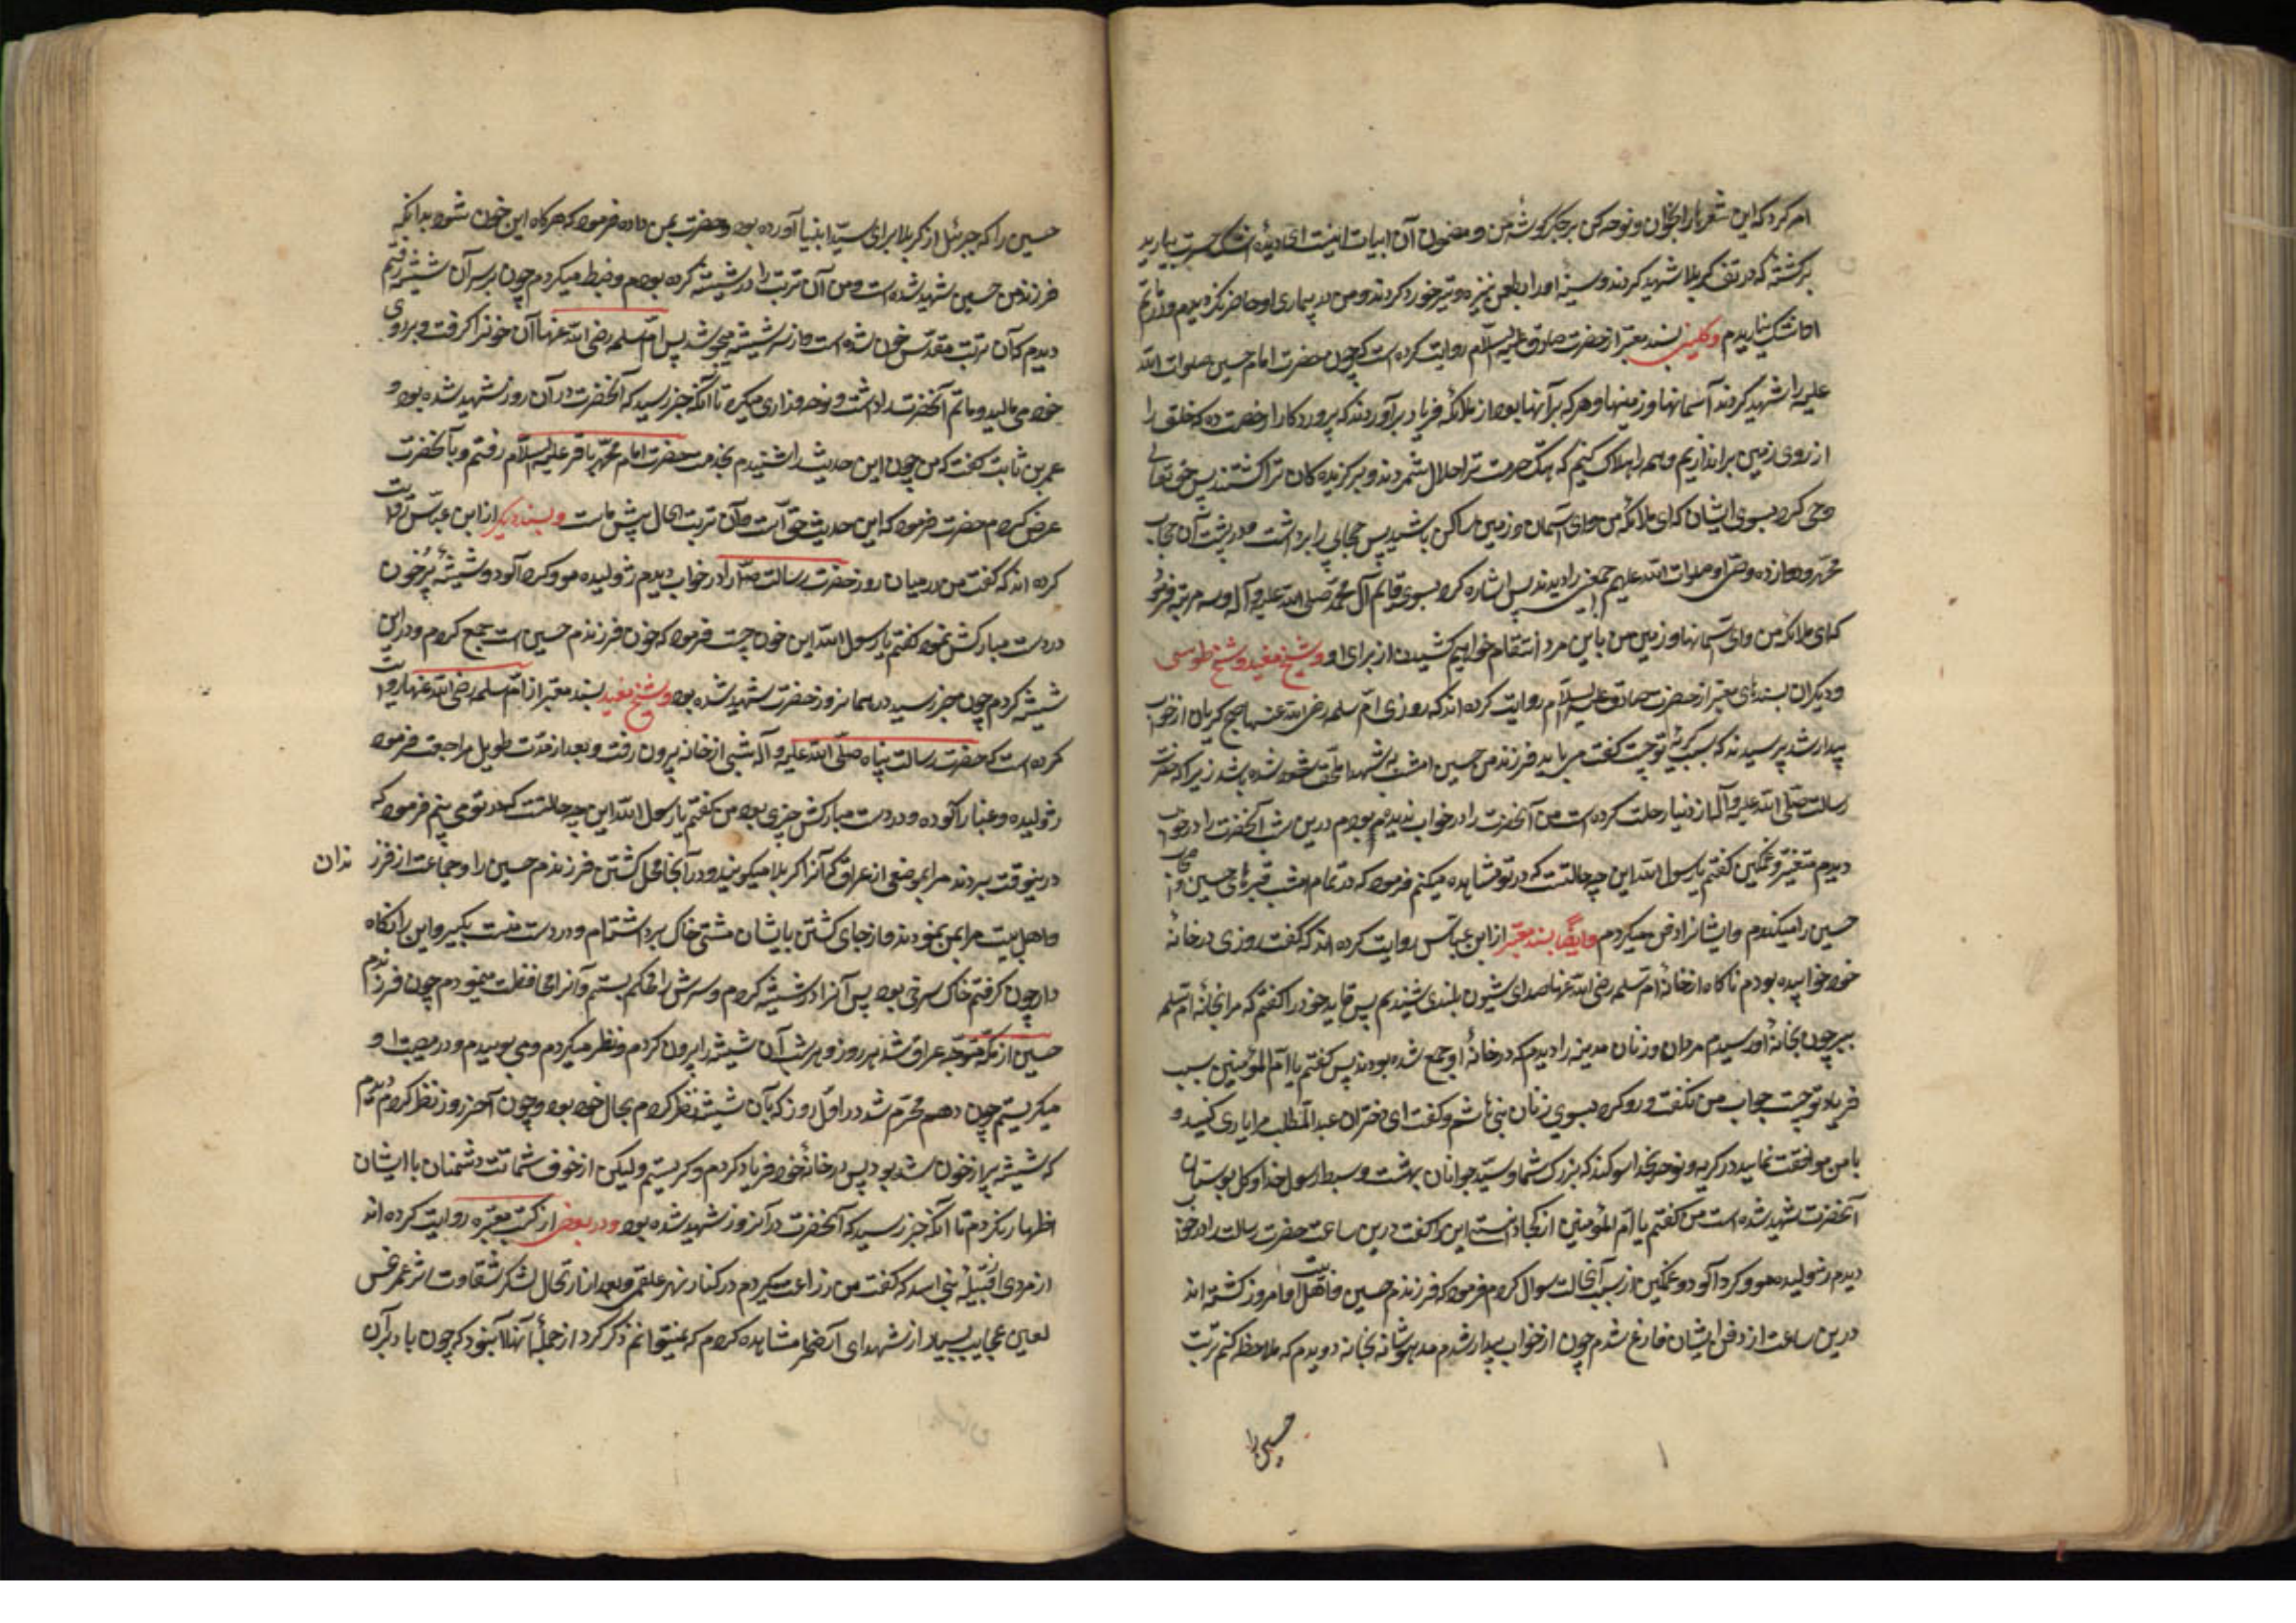 امر کرد که این شعرها را بخوان و نوحه کن بر جگر گوشهٔ من و مضمون آن ابیات اینست ای دیده اشک حسرت ببارید
بر کشتهٔ که در تف کربلا شهید کردند و سینهٔ او را بطعن نیزه و تیر خورد کردند و من در بیماری او حاضر نگردیدم و در ماتم
او اشک نباریدم وکلینی بسند معتبر از حضرت صادق علیه السلام روایت کرده است که چون حضرت امام حسین صلوات الله
علیه را شهید کردند آسمانها و زمینها و هر که بر آنها بود از ملائکه فریاد برآوردند که پروردکارا رخصت ده که خلق را
از روی زمین براندازیم و همه را هلاک کنیم که هتک حرمت ترا حلال شمردند و برکزیده کان ترا کشتند پس حق تعالی
وحی کرد بسوی ایشان که ای ملائکه من و ای آسمان و زمین من ساکن باشید پس حجابی را برداشت و در پشت آن حجاب
محمد و دوازده وصی او صلوات الله علیهم اجمعین را دیدند پس اشاره کرد بسوی قائم آل محمد صلی الله علیه و آله و سه مرتبه فرمود
که ای ملائکه من و ای آسمانها و زمین من باین مرد انتقام خواهم کشیدن از برای او وشیخ مفید و شیخ طوسی
و دیکران بسندهای معتبر از حضرت صادق علیه السلام روایت کرده اند که روزی ام سلمه رضی الله عنها صبح کریان از خواب
بیدار شد پرسیدند که سبب کریهٔ تو چیست کفت می باید فرزند من حسین امشب به شهدا ملحق شده باشد زیرا که حضرت
رسالت صلی الله علیه و آله تا از دنیا رحلت کرده است من آنحضرت را در خواب ندیده بودم درین شب آنحضرت را در خواب
دیدم متغیر و غمکین کفتم یا رسول الله این چه حالتست که در تو مشاهده میکنم فرمود که در تمام امشب قبرهای حسین و اصحاب
حسین را میکندم و ایشانرا دفن میکردم وایضا بسند معتبر از ابن عباس روایت کرده اند که کفت روزی در خانهٔ
خود خوابیده بودم ناکاه از خانهٔ ام سلمه رضی الله عنها صدای شیون بلندی شنیدم پس قاید خود را کفتم که مرا بخانهٔ ام سلمه
ببر چون بخانهٔ او رسیدم مردان و زنان مدینه را دیدم که در خانهٔ او جمع شده بودند پس کفتم یا ام المؤمنین سبب
فریاد تو چیست جواب من نکفت و رو کرد بسوی زنان بنی هاشم و کفت ای دختران عبدالمطلب مرا یاری کنید و
با من موافقت نمایید در کریه و نوحه بخدا سوکند که بزرک شما و سید جوانان بهشت و سبط رسول خدا و کل بوستان
آنحضرت شهید شده است من کفتم یا ام المؤمنین از کجا دانستی این را کفت درین ساعت حضرت رسالت را در خواب
دیدم ژولیده مو و کرد آلود و غمکین از سبب آنحالت سوال کردم فرمود که فرزندم حسین و اهل بیت او امروز کشته اند
درین ساعت از دفن ایشان فارغ شدم چون از خواب بیدار شدم مدهوشانه بخانه دویدم که ملاحظه کنم تربت
حسین را
حسین را که جبرئیل از کربلا برای سید انبیا آورده بود و حضرت بمن داده فرمود که هرکاه این خون شود بدانکه
فرزند من حسین شهید شده است و من آن تربت را در شیشه کرده بودم و ضبط میکردم چون بر سر آن شیشه رفتم
دیدم که آن تربت مقدس خون شده است و از سر شیشه میجوشد پس ام سلمه رضی الله عنها آن خونرا کرفت و بر روی
خود می مالید و ماتم آنحضرت را داشت و نوحه و زاری میکرد تا آنکه خبر رسید که آنحضرت در آن روز شهید شده بود و
عمر بن ثابت کفت که من چون این حدیث را شنیدم بخدمت حضرت امام محمد باقر علیه السلام رفتم و بآنحضرت
عرض کردم حضرت فرمود که این حدیث حق است و آن تربت الحال پیش ماست وبسند دیکر از ابن عباس روایت
کرده اند که کفت من در میان روز حضرت رسالت ص را در خواب دیدم ژولیده مو و کرد آلود و شیشهٔ پر خون
در دست مبارکش بود کفتم یا رسول الله این خون چیست فرمود که خون فرزندم حسین است جمع کردم و در این
شیشه کردم چون خبر رسید در همانروز حضرت شهید شده بود وشیخ مفید بسند معتبر از ام سلمه رضی الله عنها روایت
کرده است که حضرت رسالت پناه صلی الله علیه و آله شبی از خانه بیرون رفت و بعد از مدت طویل مراجعت فرمود
ژولیده و غبار آلوده و در دست مبارکش چیزی بود من کفتم یا رسول الله این چه حالتست که در تو می بینم فرمود که
درینوقت بردند مرا بموضعی از عراق که آنرا کربلا میکویند و در آنجا محل کشتن فرزندم حسین را و جماعت از فرز ندان
و اهل بیت مرا بمن نمودند و از جای کشتن ایشان مشتی خاک برداشته ام و در دست منست بکیر و این را نکاه
دار چون کرفتم خاک سرخی بود پس آنرا در شیشه کردم و سرش را محکم بستم و آنرا محافظت مینمودم چون فرزندم
حسین از مکه متوجه عراق شد هر روز و هر شب آن شیشه را بیرون کردم و نظر میکردم و می بوییدم و در مصیبت او
میکریستم چون دهم محرم شد در اول روز که بآن شیشه نظر کردم بحال خود بود و چون آخر روز نظر کردم دیدم
که شیشه پر از خون شده بود پس در خانهٔ خود فریاد کردم و کریستم ولیکن از خوف شماتت دشمنان با ایشان
اظهار نکردم تا آنکه خبر رسید که آنحضرت در آنروز شهید شده بود ودر بعضی از کتب معتبره روایت کرده اند
از مردی از قبیلهٔ بنی اسد که کفت من زراعت میکردم در کنار نهر علقمی و بعد از ارتحال لشکر شقاوت اثر عمر نحس
لعین عجایب بسیار از شهدای آنصحرا مشاهده کردم که نمیتوانم ذکر کرد از جمله آنها آن بود که چون باد بر آن